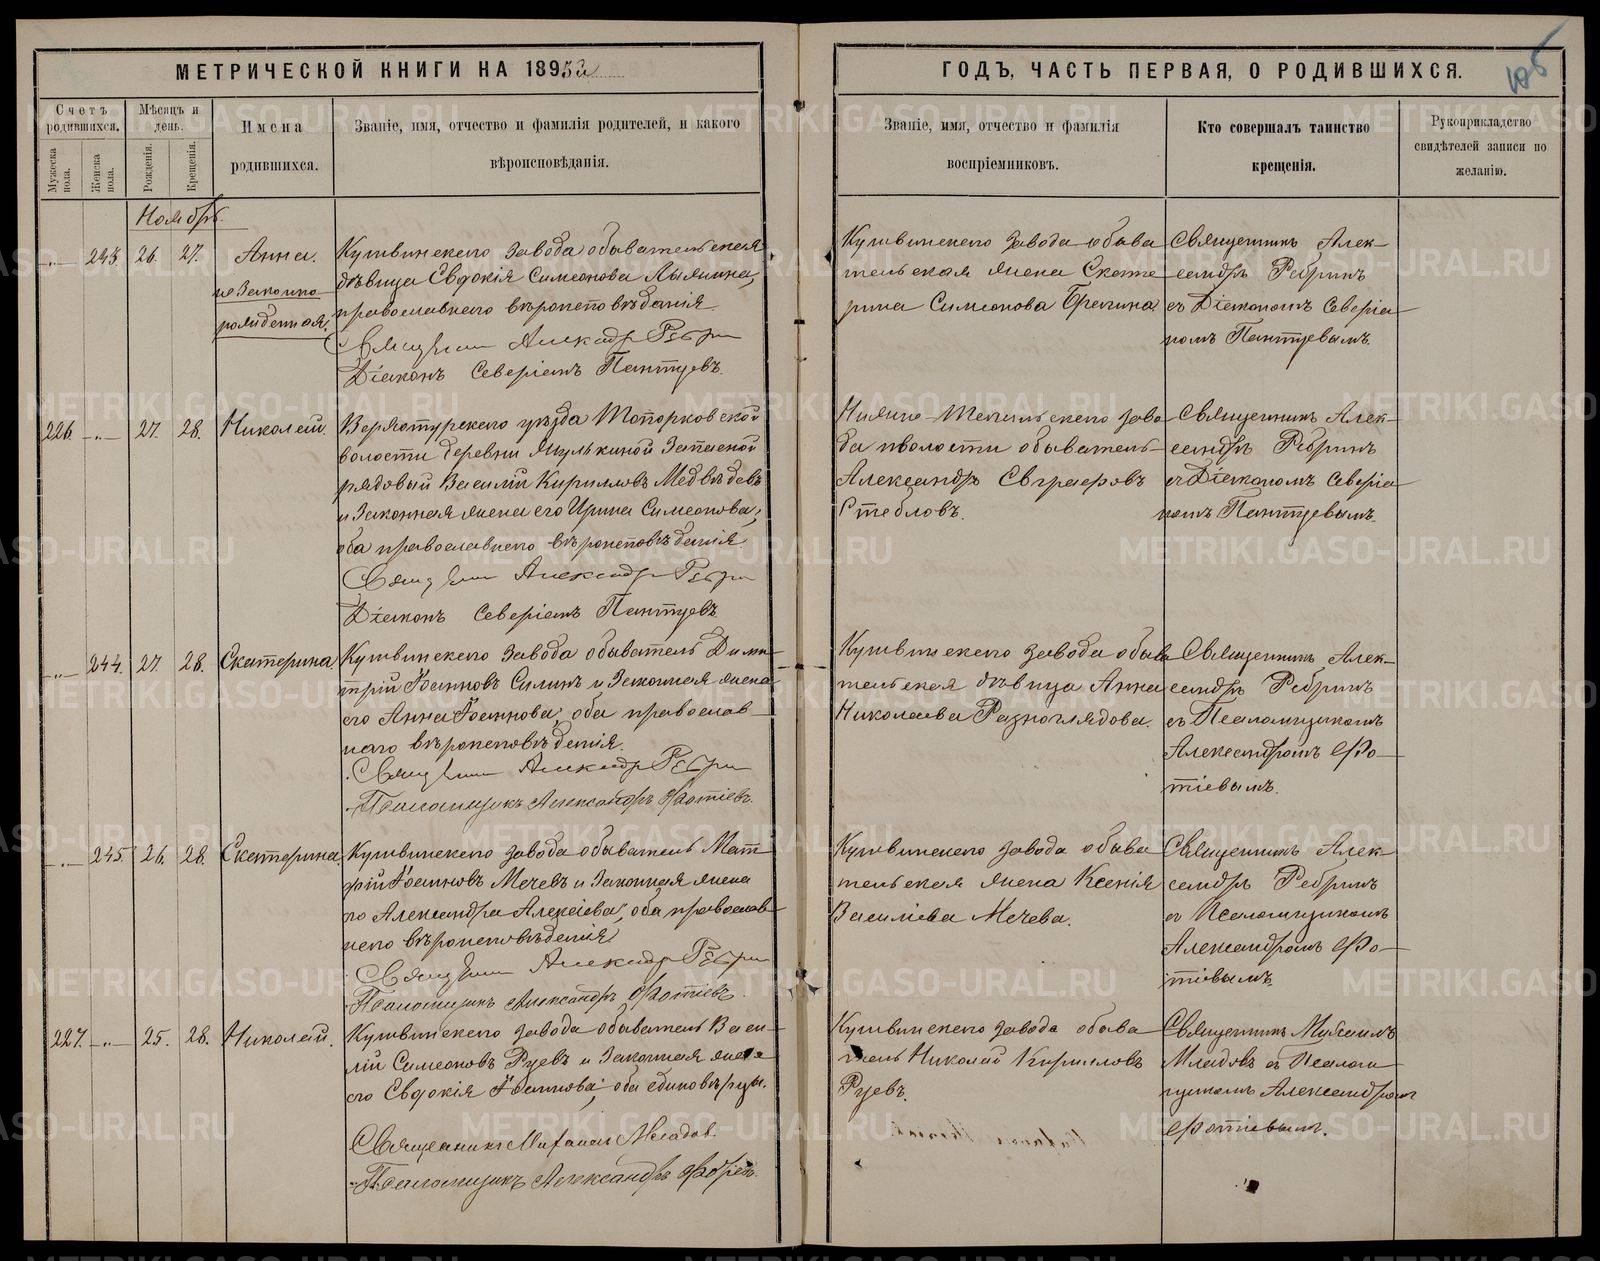 МЕТРИЧЕСКОЙ КНИГИ НА 1895й
ГОДЪ, ЧАСТЬ ПЕРВАЯ, О РОДИВШИХСЯ.
Счетъ родившихся.
Мѣсяцъ и день.
Имена родившихся.
Званіе, имя, отчество и фамилія родителей, и какого
вѣроисповѣданія.
Мужеска пола.
Женска пола.
Рожденія.
Крещенія.
Званіе, имя, отчество и фамилія
воспріемниковъ.
Кто совершалъ таинство
крещенія.
Рукоприкладство
свидѣтелей записи по
желанію.
Ноябрь.
243. 26. 27. Анна.
незаконно
рожденная.
Кушвинскаго завода обывательская
дѣвица Евдокія Симеонова
православнаго вѣроисповѣданія
Священникъ Александръ Ребринъ
Діаконъ Северіанъ Пантуевъ.
Кушвинскаго завода обыва
тельская жена Екате
рина Симеонова Брагина.
Священникъ Алек-
сандръ Ребринъ
съ Діакономъ Северіа
номъ Пантуевымъ.
226. 27. 28. Николай.
Верхотурскаго уѣзда Топорковской
волости деревни Мулькиной Запасной
рядовый Василій Кирилловъ Медвѣдевъ
и законная жена его Ирина Симеонова,
оба православнаго вѣроисповѣданія
Священникъ Александръ Ребринъ
Діаконъ Северіанъ Пантуевъ
Нижне-Тагильскаго заво
да и волости обыватель
Александръ Евграфовъ
Стебловъ.
Священникъ Алек-
сандръ Ребринъ
съ Діакономъ Северіа
номъ Пантуевымъ.
244. 27. 28. Екатерина
Кушвинскаго завода обыватель Дими-
трій Іоанновъ Силинъ и законная жена
его Анна Іоаннова, оба православ-
наго вѣроисповѣданія.
Священникъ Александръ Ребринъ
Псаломщикъ Александръ Фотіевъ.
Кушвинскаго завода обыва
тельская дѣвица Анна
Николаева Разноглядова.
Священникъ Алек-
сандръ Ребринъ
съ Псаломщикомъ
Александромъ Фо-
тіевымъ.
245. 26. 28. Екатерина
Кушвинскаго завода обыватель Мат
фій Іоанновъ Мечевъ и законная жена
его Александра Алексіева, оба православ
наго вѣроисповѣданія
Священникъ Александръ Ребринъ
Псаломщикъ Александръ Фотіевъ.
Кушвинскаго завода обыва
тельская жена Ксенія
Василіева Мечева.
Священникъ Алек-
сандръ Ребринъ
съ Псаломщикомъ
Александромъ Фо-
тіевымъ
227. 25. 28. Николай.
Кушвинскаго завода обыватель Васи-
лій Симеоновъ Руевъ и законная жена
его Евдокія Іоаннова, оба единовѣрцы.
Священникъ Михаилъ Младовъ.
Псаломщикъ Александръ Фотіевъ.
Кушвинскаго завода обыва
тель Николай Кирилловъ
Руевъ.
Священникъ Михаилъ
Младовъ съ Псалом
щикомъ Александромъ
Фотіевымъ.
METRIKI.GASO-URAL.RU